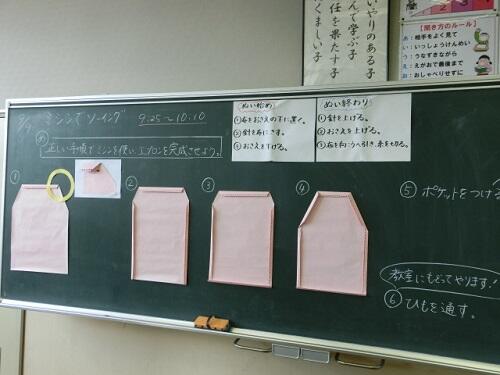 いやりのある子
んで学ぶ子
任を果たす子
くましい子
【聞き方のルール】
あ:相手をよく見て
い:いっしょうけんめい
う:うなずきながら
え:えがおで最後まで
お:おしゃべりせずに
ミシンで ソーイング 9:25〜10:10
め
正しい手順でミシンを使い、エプロンを完成させよう。
ぬい始め
①布をおさえの下に置く。
②針を布にさす。
③おさえを下げる。
ぬい終わり
①針を上げる。
②おさえを上げる。
③布を向こうへ引き、糸を切る。
①
②
③
④
⑤ ポケットをつける
教室にもどってやります!
⑥ ひもを通す。